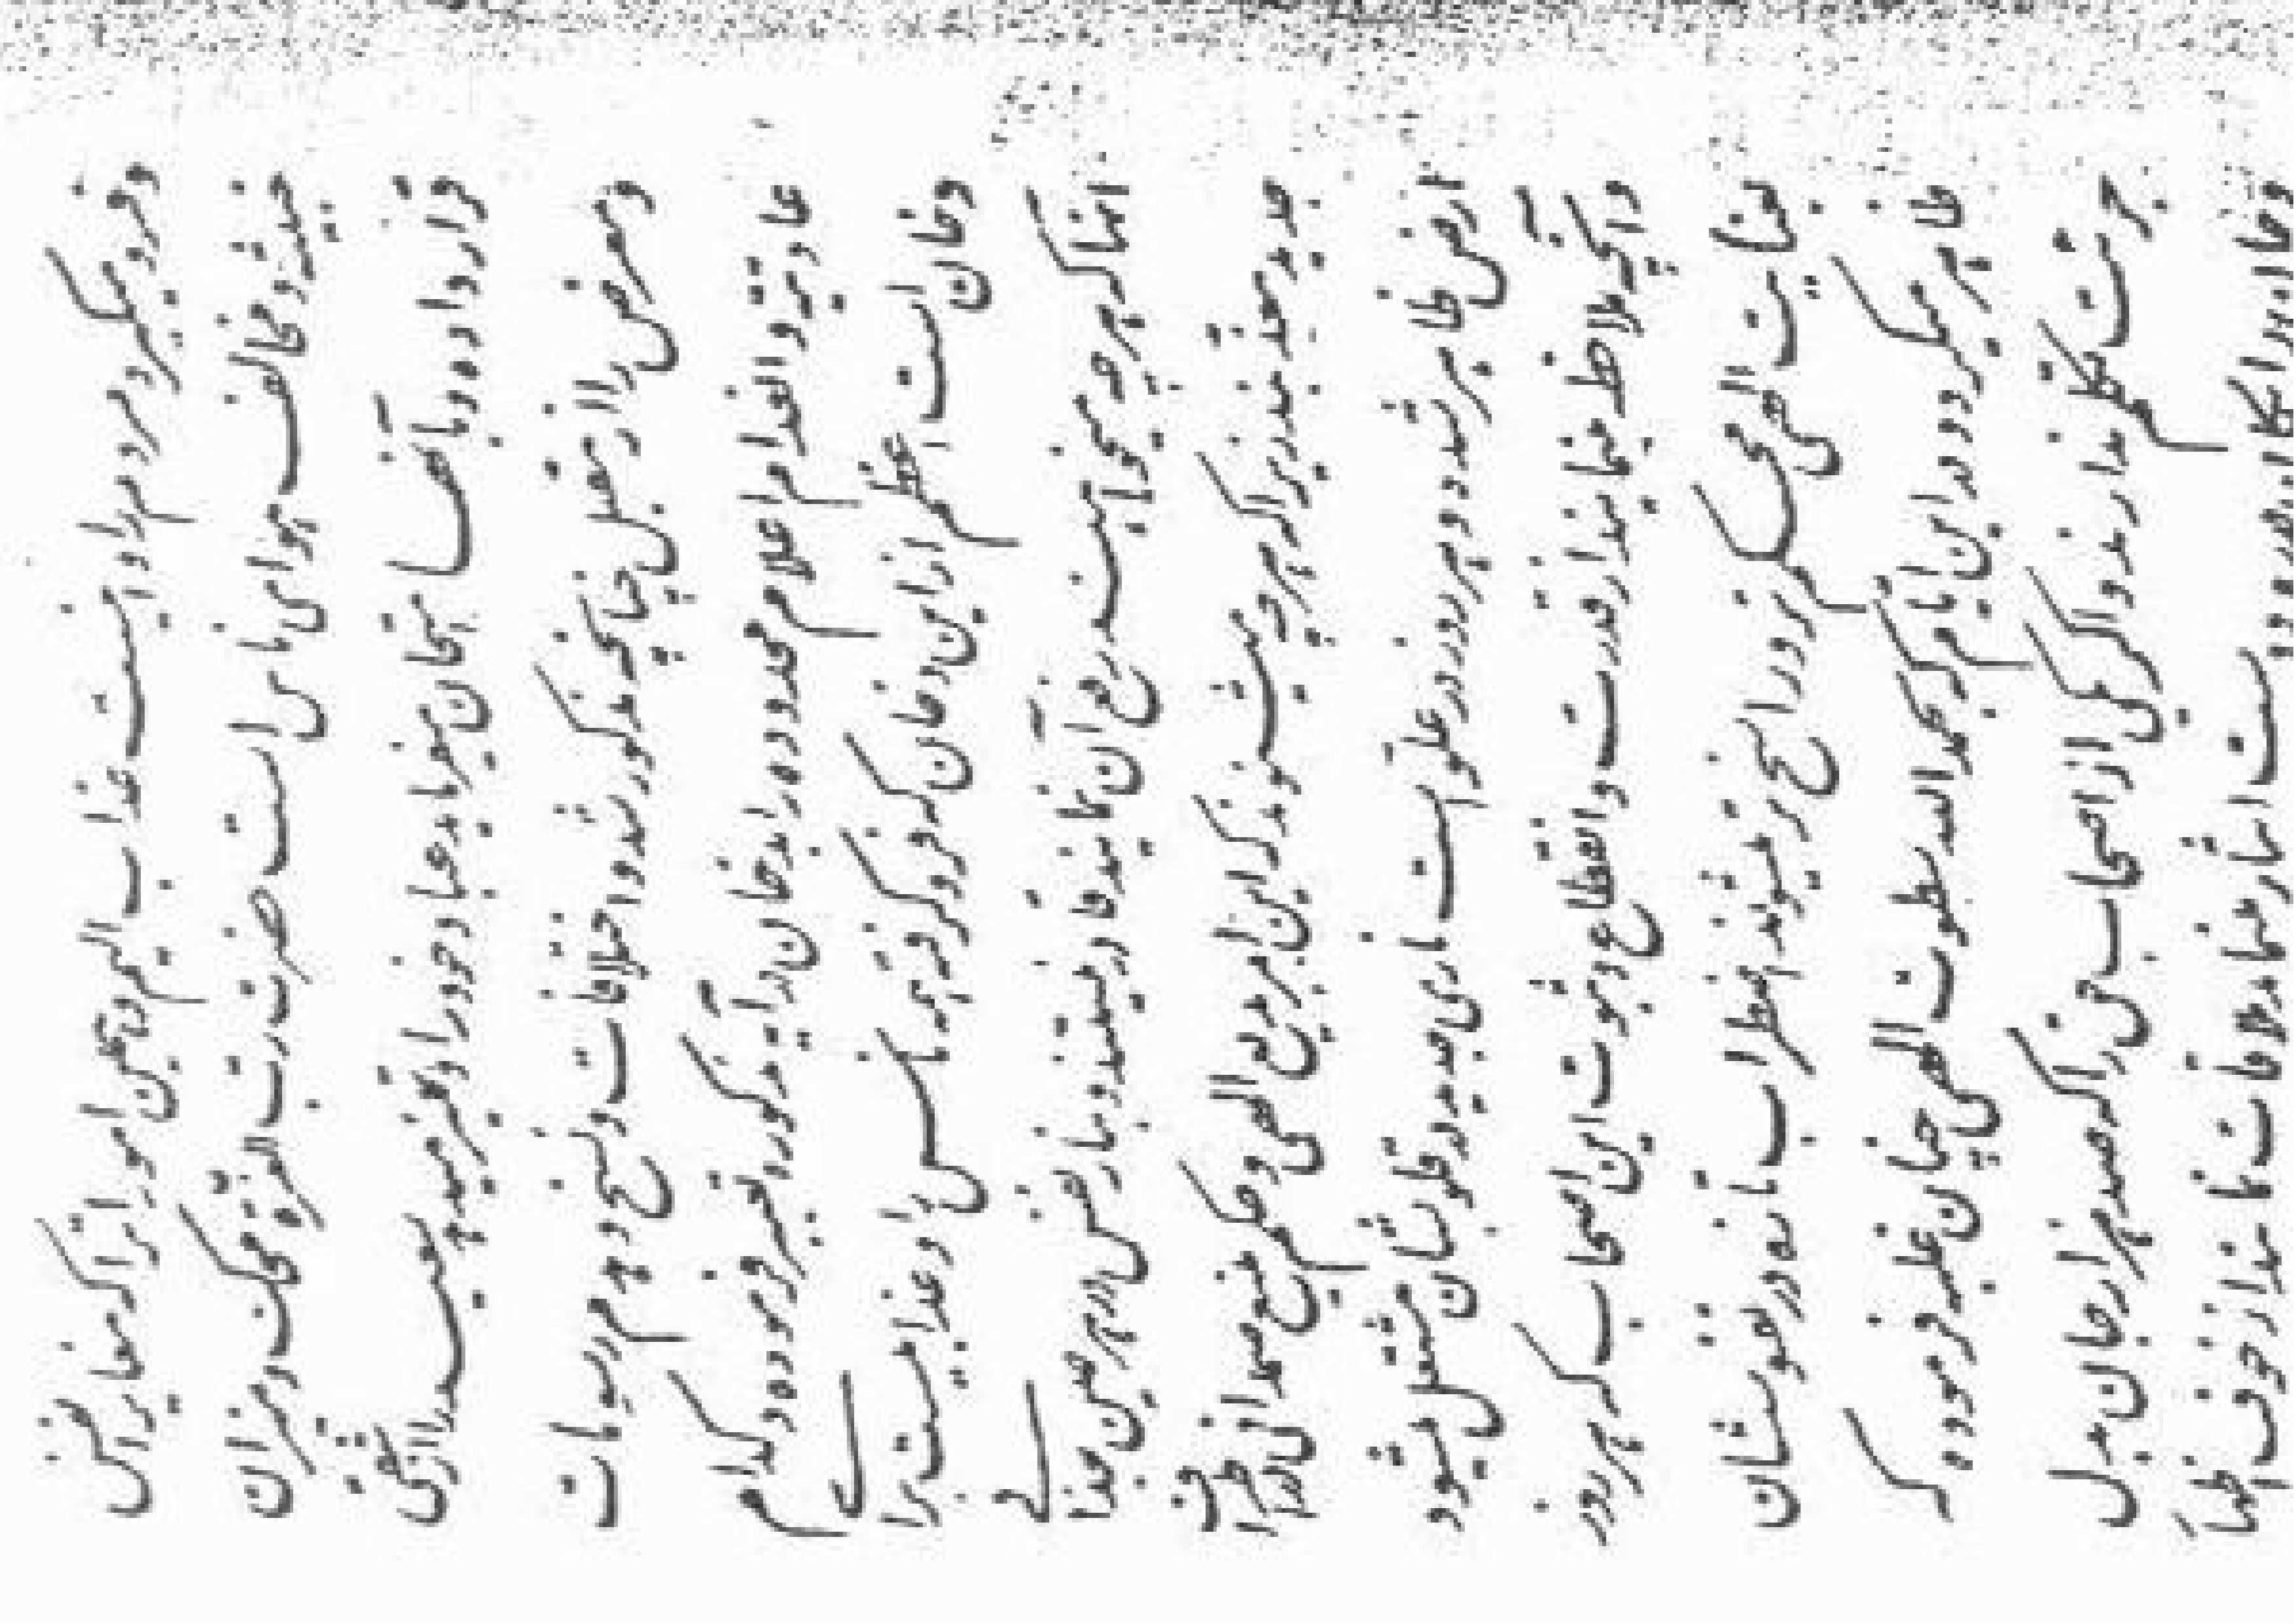 و فرو میگیرد مردم را و اینست عذاب الیم و همین امور اتی را که مغایر انفس
خبیثه و مخالف هوای ناس است حضرت رب العزّه محک و میزان
قرار داده و بانها امتحان میفرماید عباد خود را و تمیز میدهد سعید را از شقی
و معرض را از مقبل چنانچه مذکور شد و اختلافات و نسخ و هدم رسومات
عادیه و انعدام اعلام محدوده را بدخان در آیه مذکوره تعبیر فرموده و کدام
دخان است اعظم از این دخان که فرو گرفته همه ناس را و عذابیست برای
انها که هرچه میخواهند رفع آن نمایند قادر نیستند و بنار نفس در هر حین بعذابی
جدید معذّبند زیرا که هرچه میشنوند که این امر بدیع الهی و حکم منیع صمدانی در اطراف
ارض ظاهر شده و هر روز در علوّ است ناری جدید در قلوبشان مشتعل میشود
و آنچه ملاحظه مینمایند از قدرت و انقطاع و ثبوت این اصحاب که هر روز
بعنایت الهی محکم تر و راسخ تر میشوند اضطراب تازه در نفوسشان
ظاهر میگردد در این ایام که بحمد الله سطوت الهی چنان غلبه فرموده که
جرئت تکلم ندارند و اگر یکی از اصحاب حق را که صد هزار جان بدل
و جان در راه دوست ایثار مینماید ملاقات نمایند از خوف اظهار